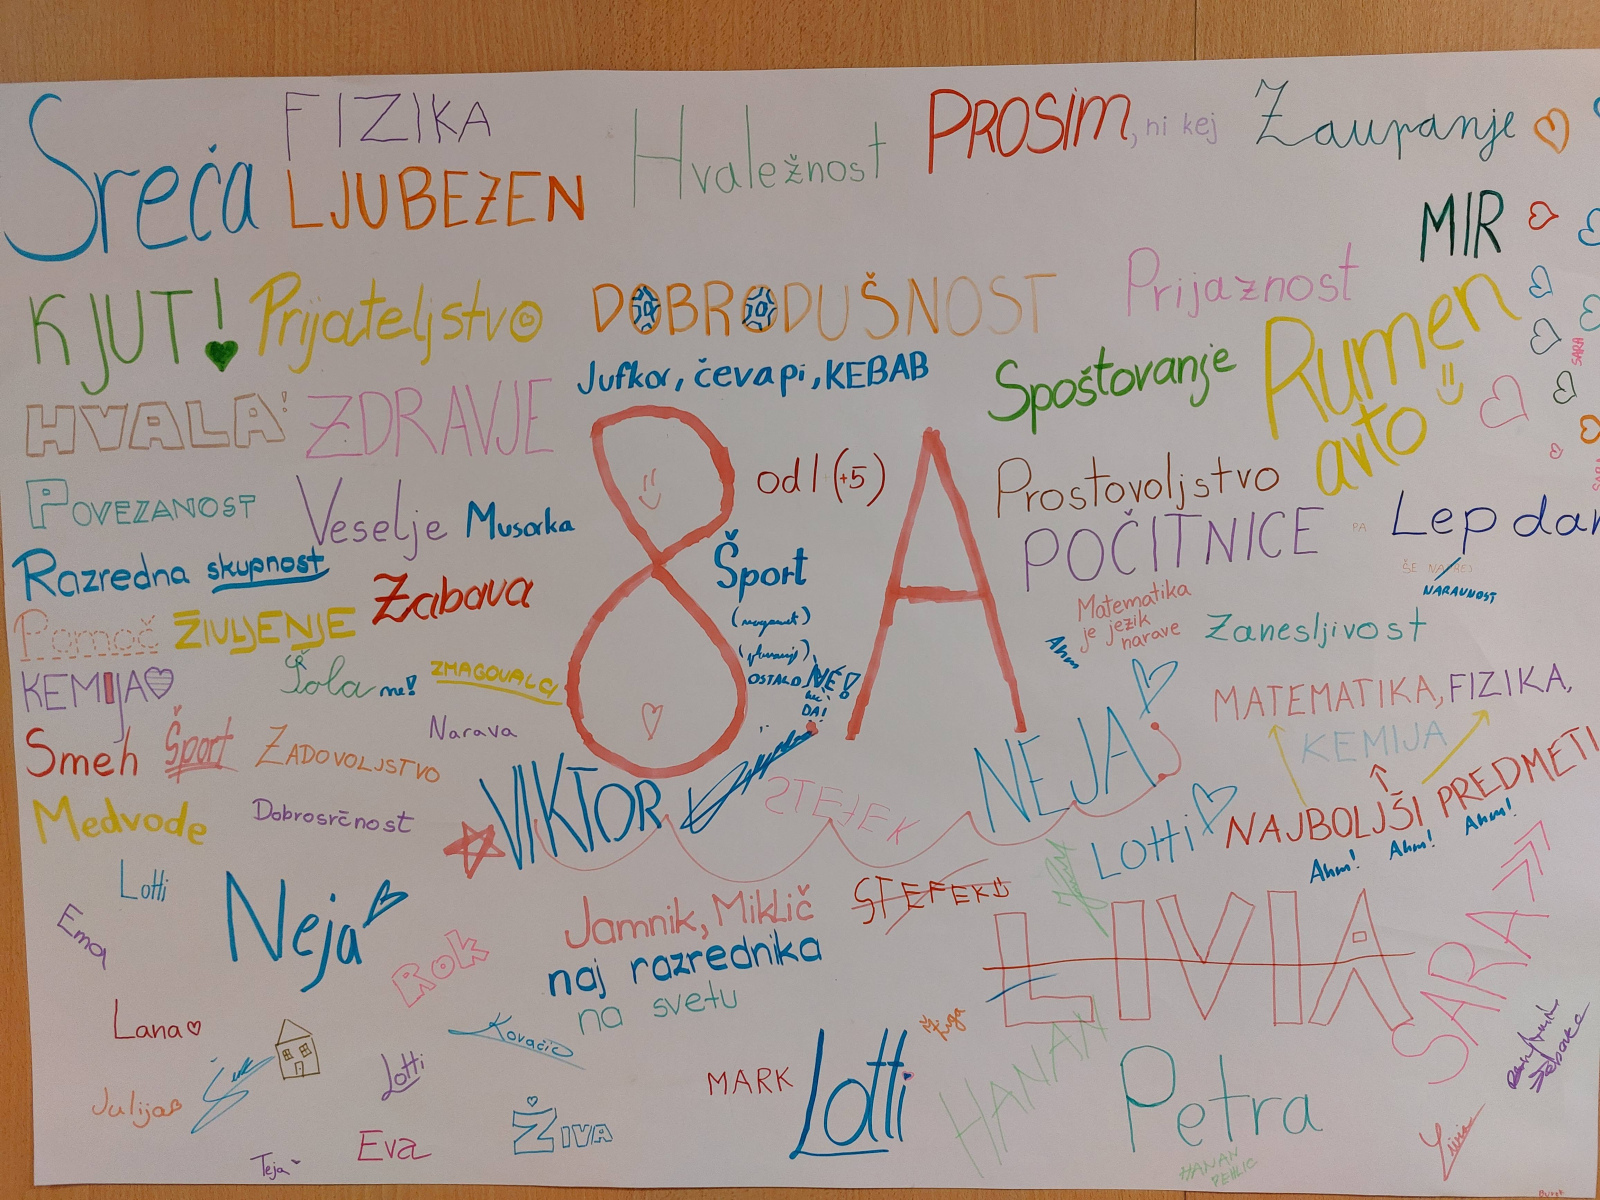 Sreča
FIZIKA
LJUBEZEN
Hvaležnost
PROSIM, ni kej
Zaupanje
MIR
KJUT!
Prijateljstvo
DOBRODUŠNOST
Prijaznost
Rumen
avto
Jufka, čevapi, KEBAB
Spoštovanje
HVALA!
ZDRAVJE
8A
od 1 (+5)
Prostovoljstvo
SARA
POVEZANOST
Veselje
Musaka
POČITNICE
PA
Lep dan
Razredna skupnost
Zabava
Šport
NARAVNOST
Pomoč
ŽIVLJENJE
Matematika
je jezik
narave
Ahm
Zanesljivost
KEMIJA
Šola ne!
ZMAGOVALCI
OSTALO NE!
DA!
MATEMATIKA, FIZIKA,
KEMIJA
NAJBOLJŠI PREDMETI
Ahm! Ahm! Ahm!
Smeh
Šport
ZADOVOLJSTVO
Narava
Medvode
Dobrosrčnost
VIKTOR
STEFEK
NEJA
Lotti
Lotti
Ema
Neja
Rok
Jamnik, Miklič
naj razrednika
na svetu
STEFEK
LIVIA
SARA
Lana
Julija
Kovačič
Lotti
Žiga
MARK
Lotti
HANAN
Petra
Teja
Eva
ŽIVA
HANAN
Livia